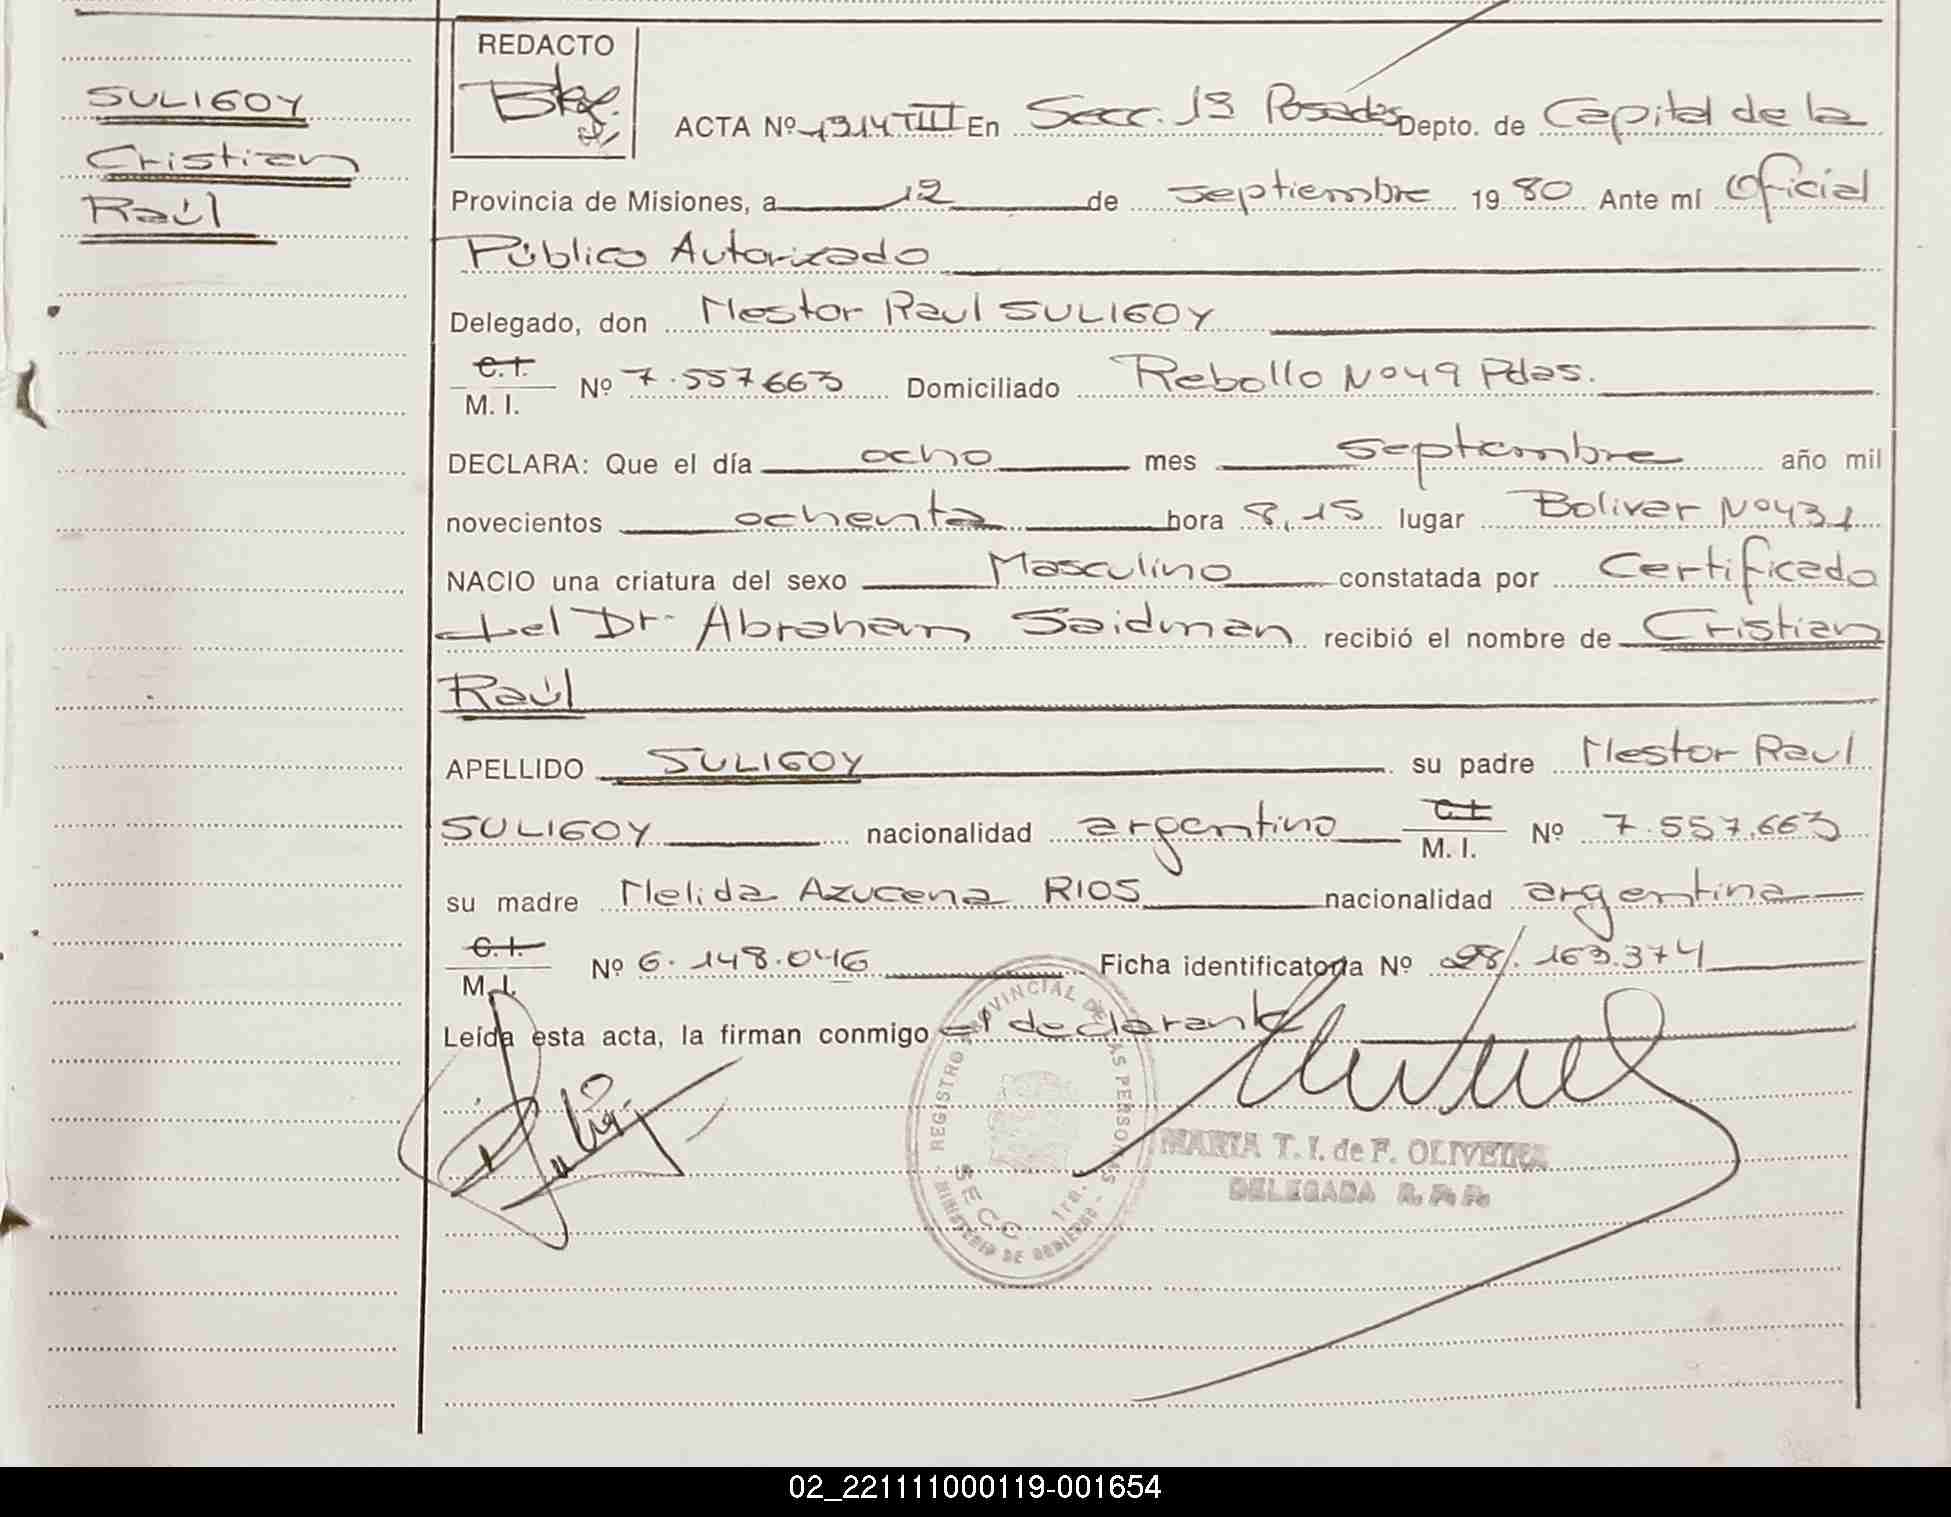 SULIGOY
Cristian
Raúl
REDACTO
ACTA Nº 1914 TIII En Secc. 1ª Posadas Depto. de Capital de la
Provincia de Misiones, a 12 de septiembre 1980 Ante mí Oficial
Público Autorizado
Delegado, don Nestor Raul SULIGOY
C.I.
M. I. Nº 7.557663 Domiciliado Rebollo Nº 49 Pdas.
DECLARA: Que el día ocho mes septiembre año mil
novecientos ochenta hora 8,15 lugar Bolivar Nº 431
NACIO una criatura del sexo Masculino constatada por Certificado
del Dr. Abraham Saidman recibió el nombre de Cristian
Raúl
APELLIDO SULIGOY su padre Nestor Raul
SULIGOY nacionalidad argentino C.I.
M. I. Nº 7.557.663
su madre Nelida Azucena RIOS nacionalidad argentina
C.I.
M. I. Nº 6.148.046 Ficha identificatoria Nº 28.163.374
Leída esta acta, la firman conmigo el declarante
REGISTRO PROVINCIAL DE LAS PERSONAS
SECC. 1ra.
MINISTERIO DE GOBIERNO
MARIA T. I. de F. OLIVEIRA
DELEGADA R. P. P.
02_221111000119-001654